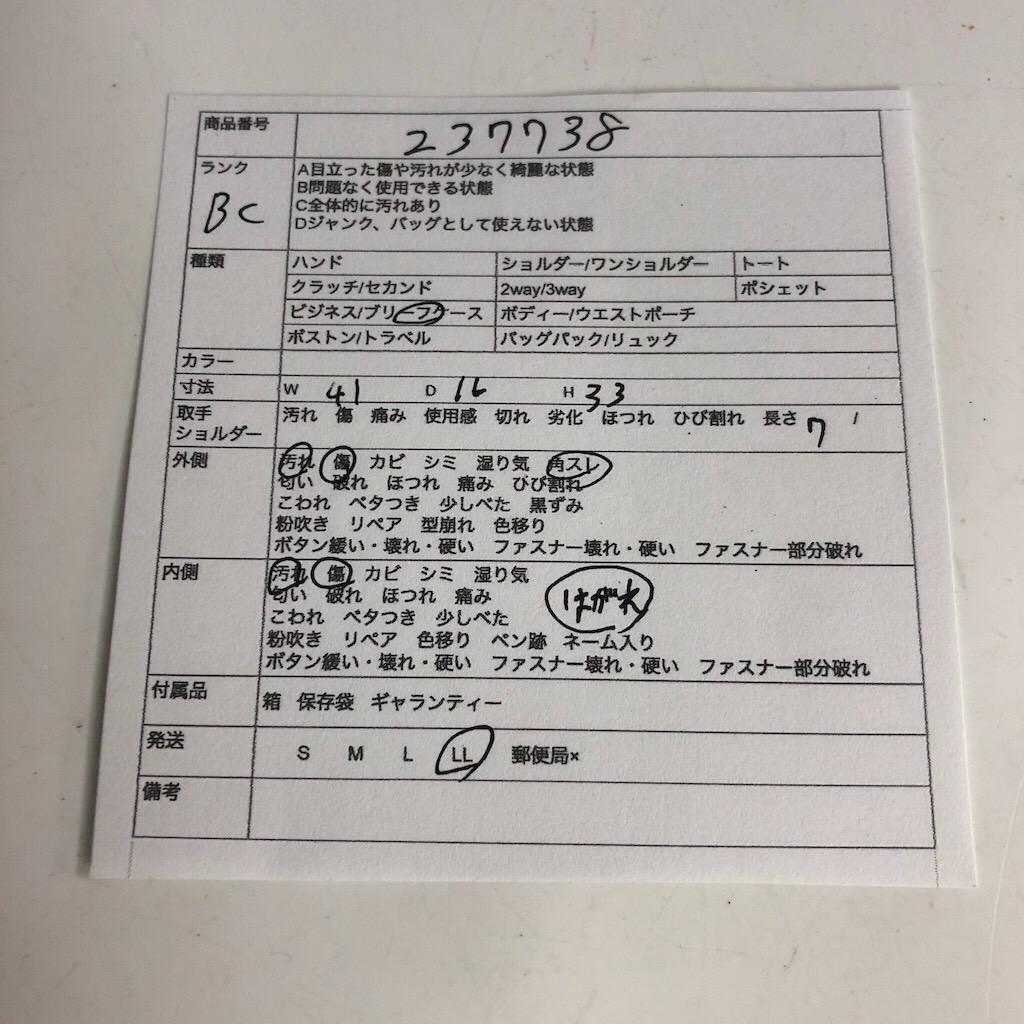 商品番号 237738
ランク A目立った傷や汚れが少なく綺麗な状態
B問題なく使用できる状態
BC C全体的に汚れあり
Dジャンク、バッグとして使えない状態
種類 ハンド ショルダー/ワンショルダー トート
クラッチ/セカンド 2way/3way ポシェット
ビジネス/ブリーフケース ボディー/ウエストポーチ
ボストン/トラベル バッグパック/リュック
カラー
寸法 W 41 D 16 H 33
取手 汚れ 傷 痛み 使用感 切れ 劣化 ほつれ ひび割れ 長さ 7 /
ショルダー
外側 汚れ 傷 カビ シミ 湿り気 角スレ
匂い 破れ ほつれ 痛み ひび割れ
こわれ ベタつき 少しべた 黒ずみ
粉吹き リペア 型崩れ 色移り
ボタン緩い・壊れ・硬い ファスナー壊れ・硬い ファスナー部分破れ
内側 汚れ 傷 カビ シミ 湿り気
匂い 破れ ほつれ 痛み はがれ
こわれ ベタつき 少しべた
粉吹き リペア 色移り ペン跡 ネーム入り
ボタン緩い・壊れ・硬い ファスナー壊れ・硬い ファスナー部分破れ
付属品 箱 保存袋 ギャランティー
発送 S M L LL 郵便局×
備考